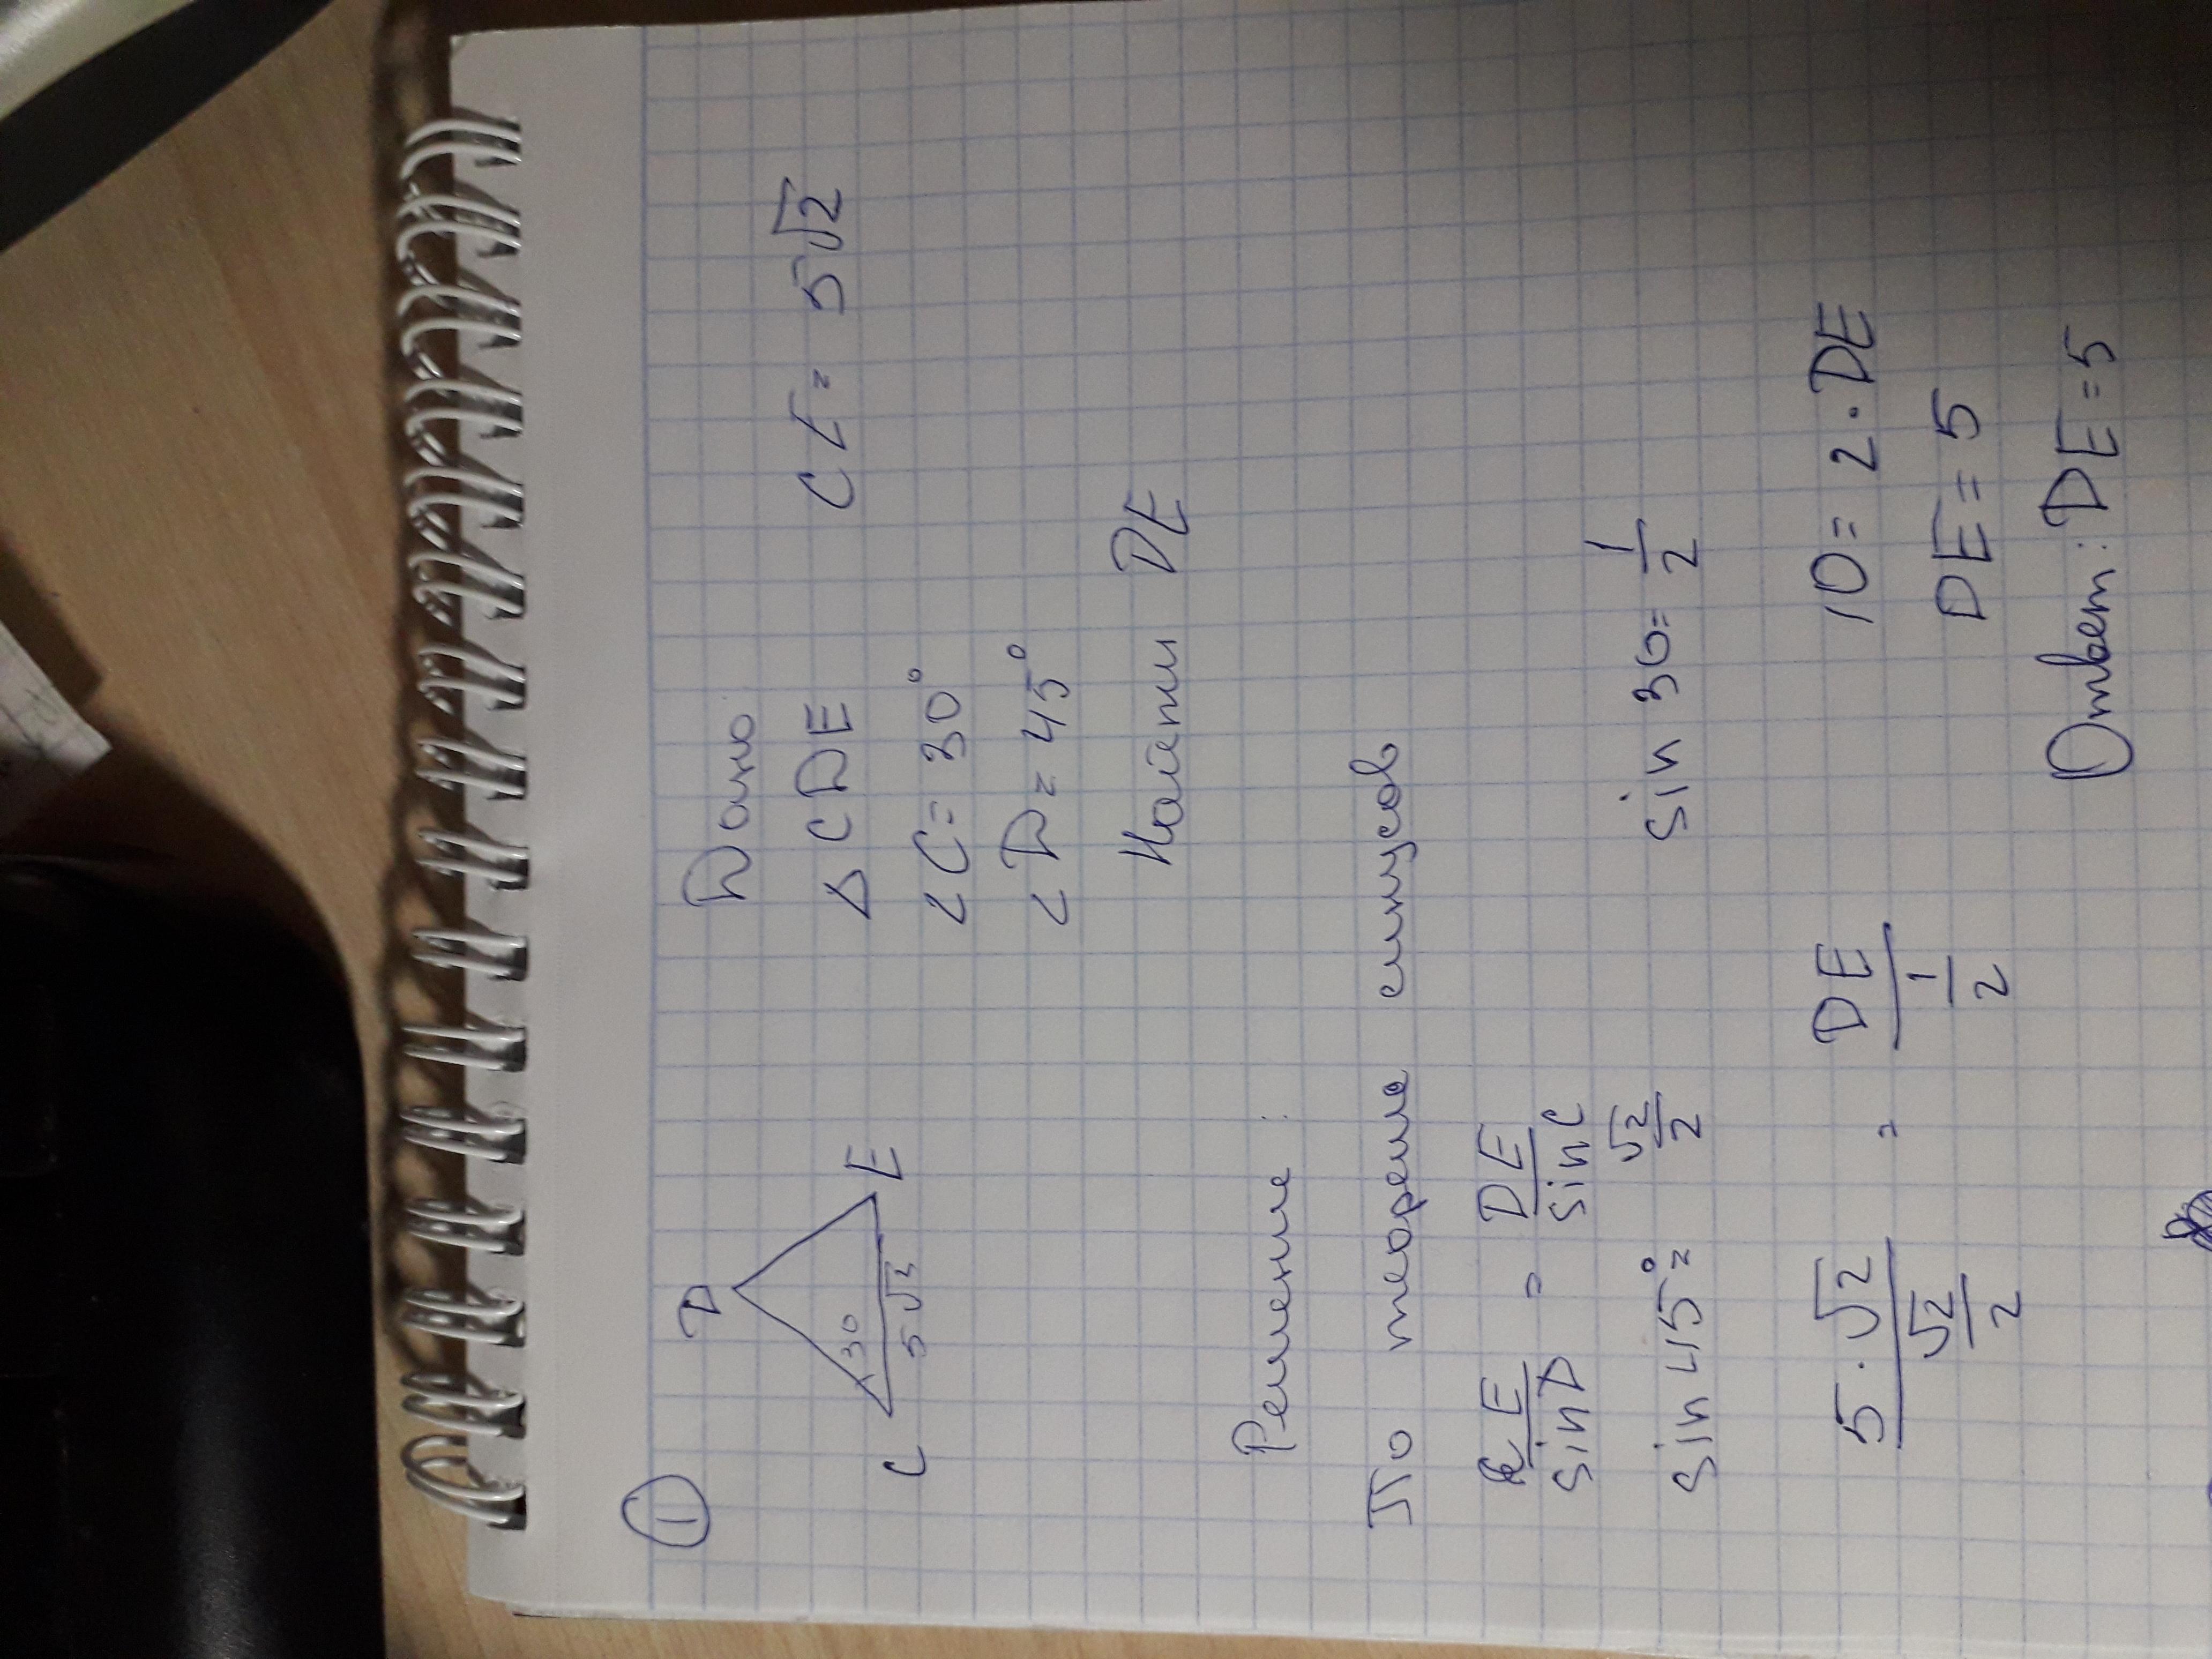 ①
D
C 30 E
5√2
Дано
△ CDE CE = 5√2
∠C = 30°
∠D = 45°
Найти DE
Решение :
По теореме синусов
CE/sin D = DE/sin C
sin 45° = √2/2 sin 30 = 1/2
5·√2/(√2/2) = DE/(1/2) 10 = 2·DE
DE = 5
Ответ: DE = 5